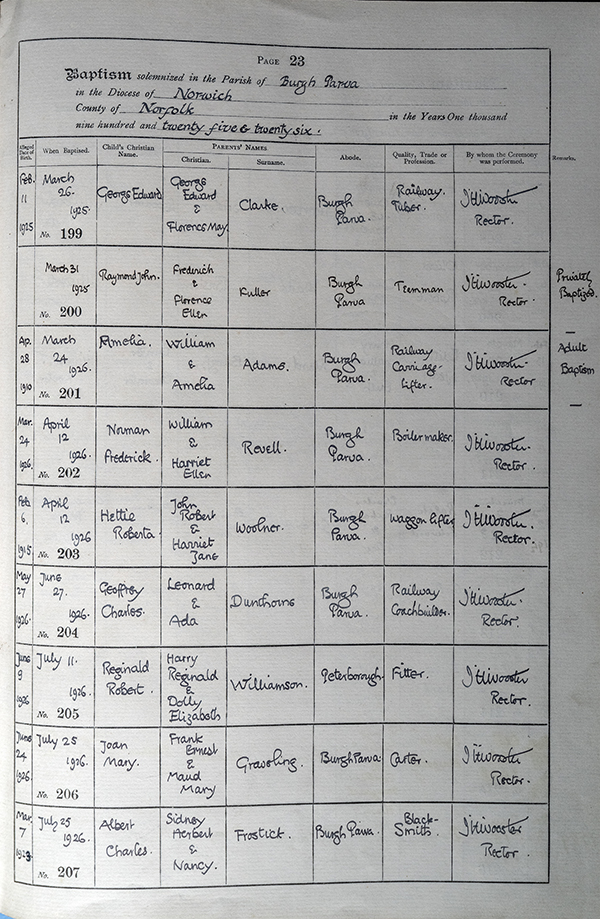 PAGE 23
Baptism solemnized in the Parish of Burgh Parva
in the Diocese of Norwich
County of Norfolk in the Years One thousand
nine hundred and twenty five & twenty six.
Alleged Date of Birth. When Baptised. Child's Christian Name. PARENTS' NAMES Christian. Surname. Abode. Quality, Trade or Profession. By whom the Ceremony was performed. Remarks.
Feb. 11 1925 March 26. 1925. No. 199 George Edward George Edward & Florence May Clarke. Burgh Parva. Railway Tuber. Rector.
March 31 1925 No. 200 Raymond John. Frederick & Florence Ellen Fuller Burgh Parva Teamman Rector. Privately Baptized.
Ap. 28 1910 March 24 1926. No. 201 Amelia. William & Amelia Adams. Burgh Parva. Railway Carriage-lifter. Rector Adult Baptism
Mar. 24 1926. April 12 1926. No. 202 Norman Frederick. William & Harriet Ellen Revell. Burgh Parva. Boilermaker. Rector.
Feb. 6. 1915 April 12 1926 No. 203 Hettie Roberta. John Robert & Harriet Jane Woolner. Burgh Parva. Waggon lifter Rector.
May 27 1926. June 27. 1926. No. 204 Geoffrey Charles. Leonard & Ada Dunthorne Burgh Parva. Railway Coachbuilder. Rector.
June 9 1926 July 11. 1926. No. 205 Reginald Robert. Harry Reginald & Dolly Elizabeth Williamson. Peterborough. Fitter. Rector.
June 24 1926. July 25 1926. No. 206 Joan Mary. Frank Ernest & Maud Mary Graveling. Burgh Parva. Carter. Rector.
Mar. 7 July 25 1926. No. 207 Albert Charles. Sidney Herbert & Nancy. Frostick. Burgh Parva. Black-Smith. Rector.